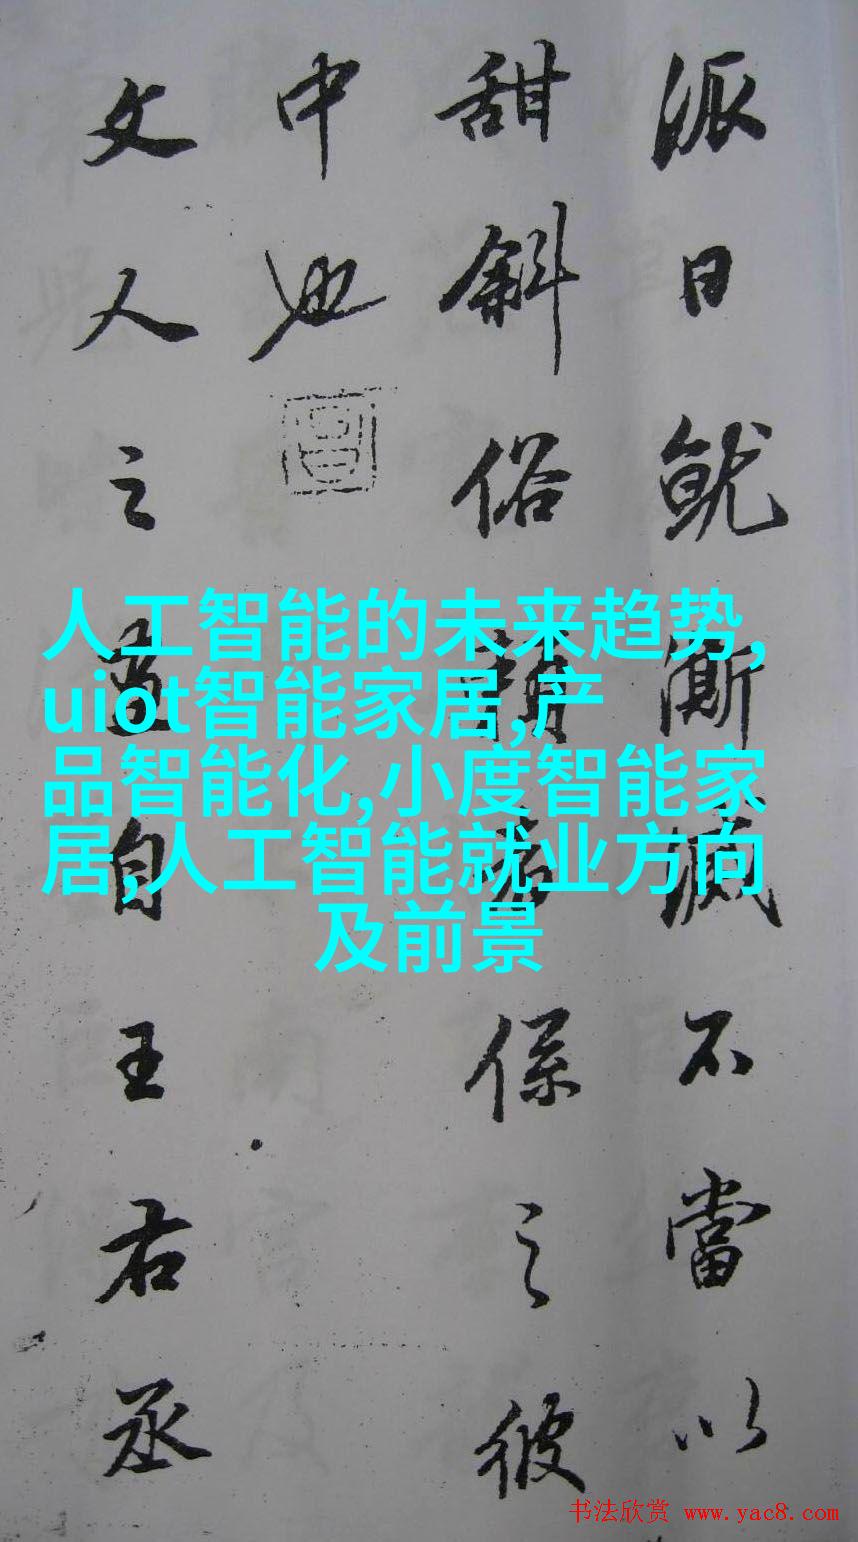 派日就澌滅不當以
甜斜俗賴者係之彼
中也
文人之畫自王右丞
人工智能的未来趋势,
uiot智能家居,产
品智能化,小度智能家
居,人工智能就业方向
及前景
书法欣赏 www.yac8.com